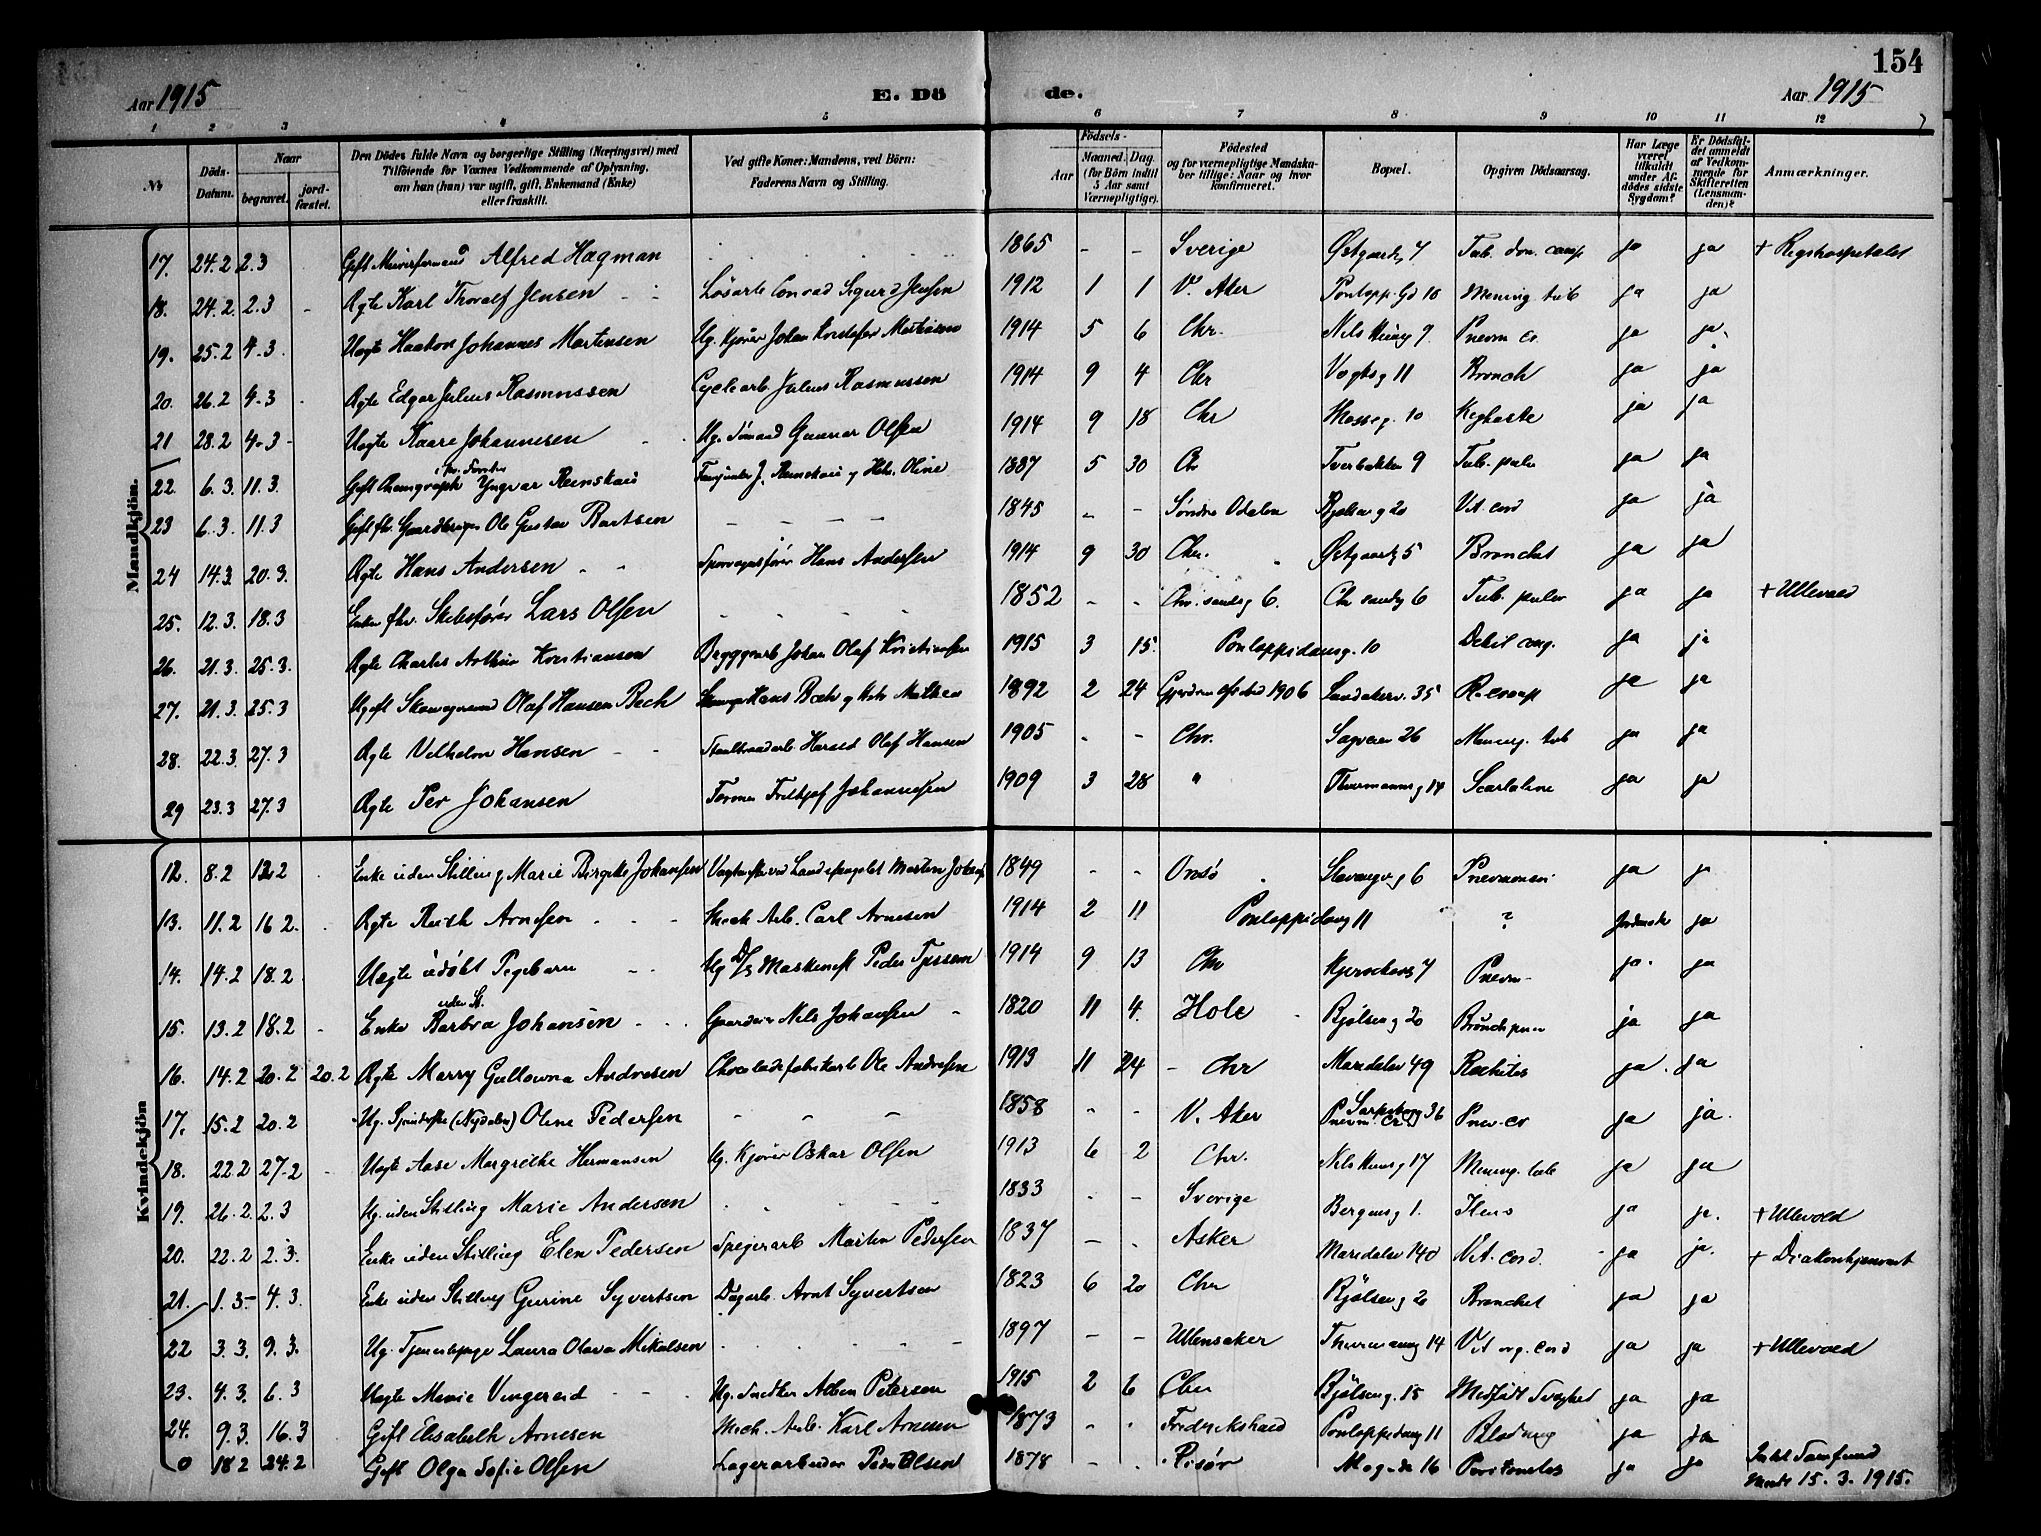 154
Aar 1915 E. Dö de. Aar 1915
1 2 3 4 5 6 7 8 9 10 11 12
No Döds-Datum. Naar begravet. jord-fæstet. Den Dödes fulde Navn og borgerlige Stilling (Næringsvei) med Tilföiende for Voxnes Vedkommende af Oplysning, om han (hun) var ugift, gift, Enkemand (Enke) eller fraskilt. Ved gifte Koner: Mandens, ved Börn: Faderens Navn og Stilling. Födsels- Aar Maaned. Dag. (for Börn indtil 5 Aar samt Værnepligtige). Födested og for værnepligtige Mandskaber tillige: Naar og hvor konfirmeret. Bopæl. Opgiven Dödsaarsag. Har Læge været tilkaldt under Afdödes sidste Sygdom? Er Dödsfaldet anmeldt af Vedkommende for Skifteretten (Lensmanden)? Anmærkninger.
Mandkjön.
17. 24.2 2.3 Gift Murerformand Alfred Hagman 1865 - - Sverige Østgaardsg 7 Tub. ja ja + Rigshospitalet
18. 24.2. 2.3 Ægte Karl Thoralf Jensen Løsarb Conrad Sigurd Jensen 1912 1 1 V. Aker Pontopp.gd 10 Mening tub ja ja
19. 25.2 4.3. Uægte Haakon Johannes Martinsen Ug. Kjører Johan 1914 5 6 Chr. Nils Huusg 9 Pnevm cr. ja ja
20. 26.2 4.3 Ægte Edgar Julius Rasmussen Cyclearb Julius Rasmussen 1914 9 4 Chr Vogtsg 11 Bronch ja ja
21 28.2 4.3 Uægte Kaare Johannesen Ug. Sømand Gunnar Olsen 1914 9 18 Chr Mosseg. 10 Kighoste ja ja
22 6.3. 11.3. Gift Yngvar 1887 5 30 Chr Tverbakken 9 Tub. pulm ja ja
23 6.3. 11.3 Gift fhv Gaardbruger Ole Gustav Bartsen - - - - 1845 - - Søndre Odalen Bjølseng 20 Vit. cord ja ja
24 14.3. 20.3. Ægte Hans Andersen Sporvognsfører Hans Andersen 1914 9 30 Chr. Østgaardsg 5 Bronchit ja ja
25. 12.3. 18.3 Enkem fhv. Skibsfører Lars Olsen - - - - 1852 - - Chr. sandsg 6. Chr sandsg 6 Tub. pulm ja ja + Ullevaal
26. 21.3. 25.3. Ægte Charles Arthur Kristiansen Bryggearb Johan Olaf Kristiansen 1915 3 15. Pontoppidansg. 10 Debil cong. ja ja
27. 21.3. 25.3 Ugift Olaf Hansen Bech Hans Bech 1892 2 24 1906 Sandakerv. 35 ja ja
28. 22.3. 27.3 Ægte Vilhelm Hansen Staaltraadarb Harald Olaf Hansen 1905 - - Chr. Sagveien 26 Mening. tub ja ja
29 23.3 27.3 Ægte Per Johansen Former Fridtjof Johannesen 1909 3 28 " Thurmannsg 14 Scarlatina ja ja
Kvindekjön
12. 8.2 12.2 Enke uden Stilling Marie Birgitte Johansen Martin 1849 - - Onsø Stavangg 6 Pnevmoni ja ja
13. 11.2 16 2. Ægte Ruth Arnesen Mech Arb. Carl Arnesen 1914 2 11 Pontoppidansg 11 ? ja
14. 14.2 18.2. Uægte udøbt Pigebarn Ug Peder 1914 9 13 Chr 7 Pnevm ja ja
15. 13.2 18.2 Enke uden St. Barbra Johansen Gaardeier Nils Johansen 1820 11 4. Hole Bjølseng 20 Bronchpnm ja ja
16. 14.2 20.2 20.2 Ægte Marry Andresen Chocoladefabrikarb Ole Andresen 1913 11 24 Chr Maridalsv 49 Rachitis ja ja
17. 15.2 20.2 Ug. (Nydalen) Oline Pedersen - - - 1858 - - V. Aker Sarpsborgg 36 Pnev. cr ja ja
18. 22.2 27.2 Uægte Aase Margrethe Hermansen Ug. Kjører Oskar Olsen 1913 6 2 Chr. Nils Huusg 17 Mening. tub ja ja
19. 26.2. 2.3 Ug. uden Stilling Marie Andersen 1833 - - Sverige Bergensg 1. Ileus ja ja + Ullevold
20. 22.2 2.3. Enke uden Stilling Elen Pedersen Spigerarb Martin Pedersen 1837 - - Asker Maridalsv 140 Vit. cord. ja ja + Diakonhjemmet
21. 1.3. 4.3. Enke uden Stilling Gurine Syvertsen Dagarb. Arnt Syvertsen 1823 6 20 Chr Bjølseng 20 Bronchit ja ja
22 3.3. 9.3. Ug. Tjenestepige Laura Olava Mikalsen 1897 - - Ullensaker Thurmannsg 14 Vit org. cord ja ja + Ullevold
23. 4.3. 6.3 Uægte Marie Vingereid Ug. Albin Petersen 1915 2 6 Chr Bjølseng. 18 Medfødt Svaghed ja ja
24. 9.3. 16.3 Gift Elisabeth Arnesen Mech. Arb. Karl Arnesen 1873 - - Fredrikshald Pontoppidansg 11 Blodning ja ja
0 18.2 24.2 Gift Olga Sofie Olsen Lagerarbeider Peder Olsen 1878 - - Risør 16 Peritonitis ja ja 15.3.1915.